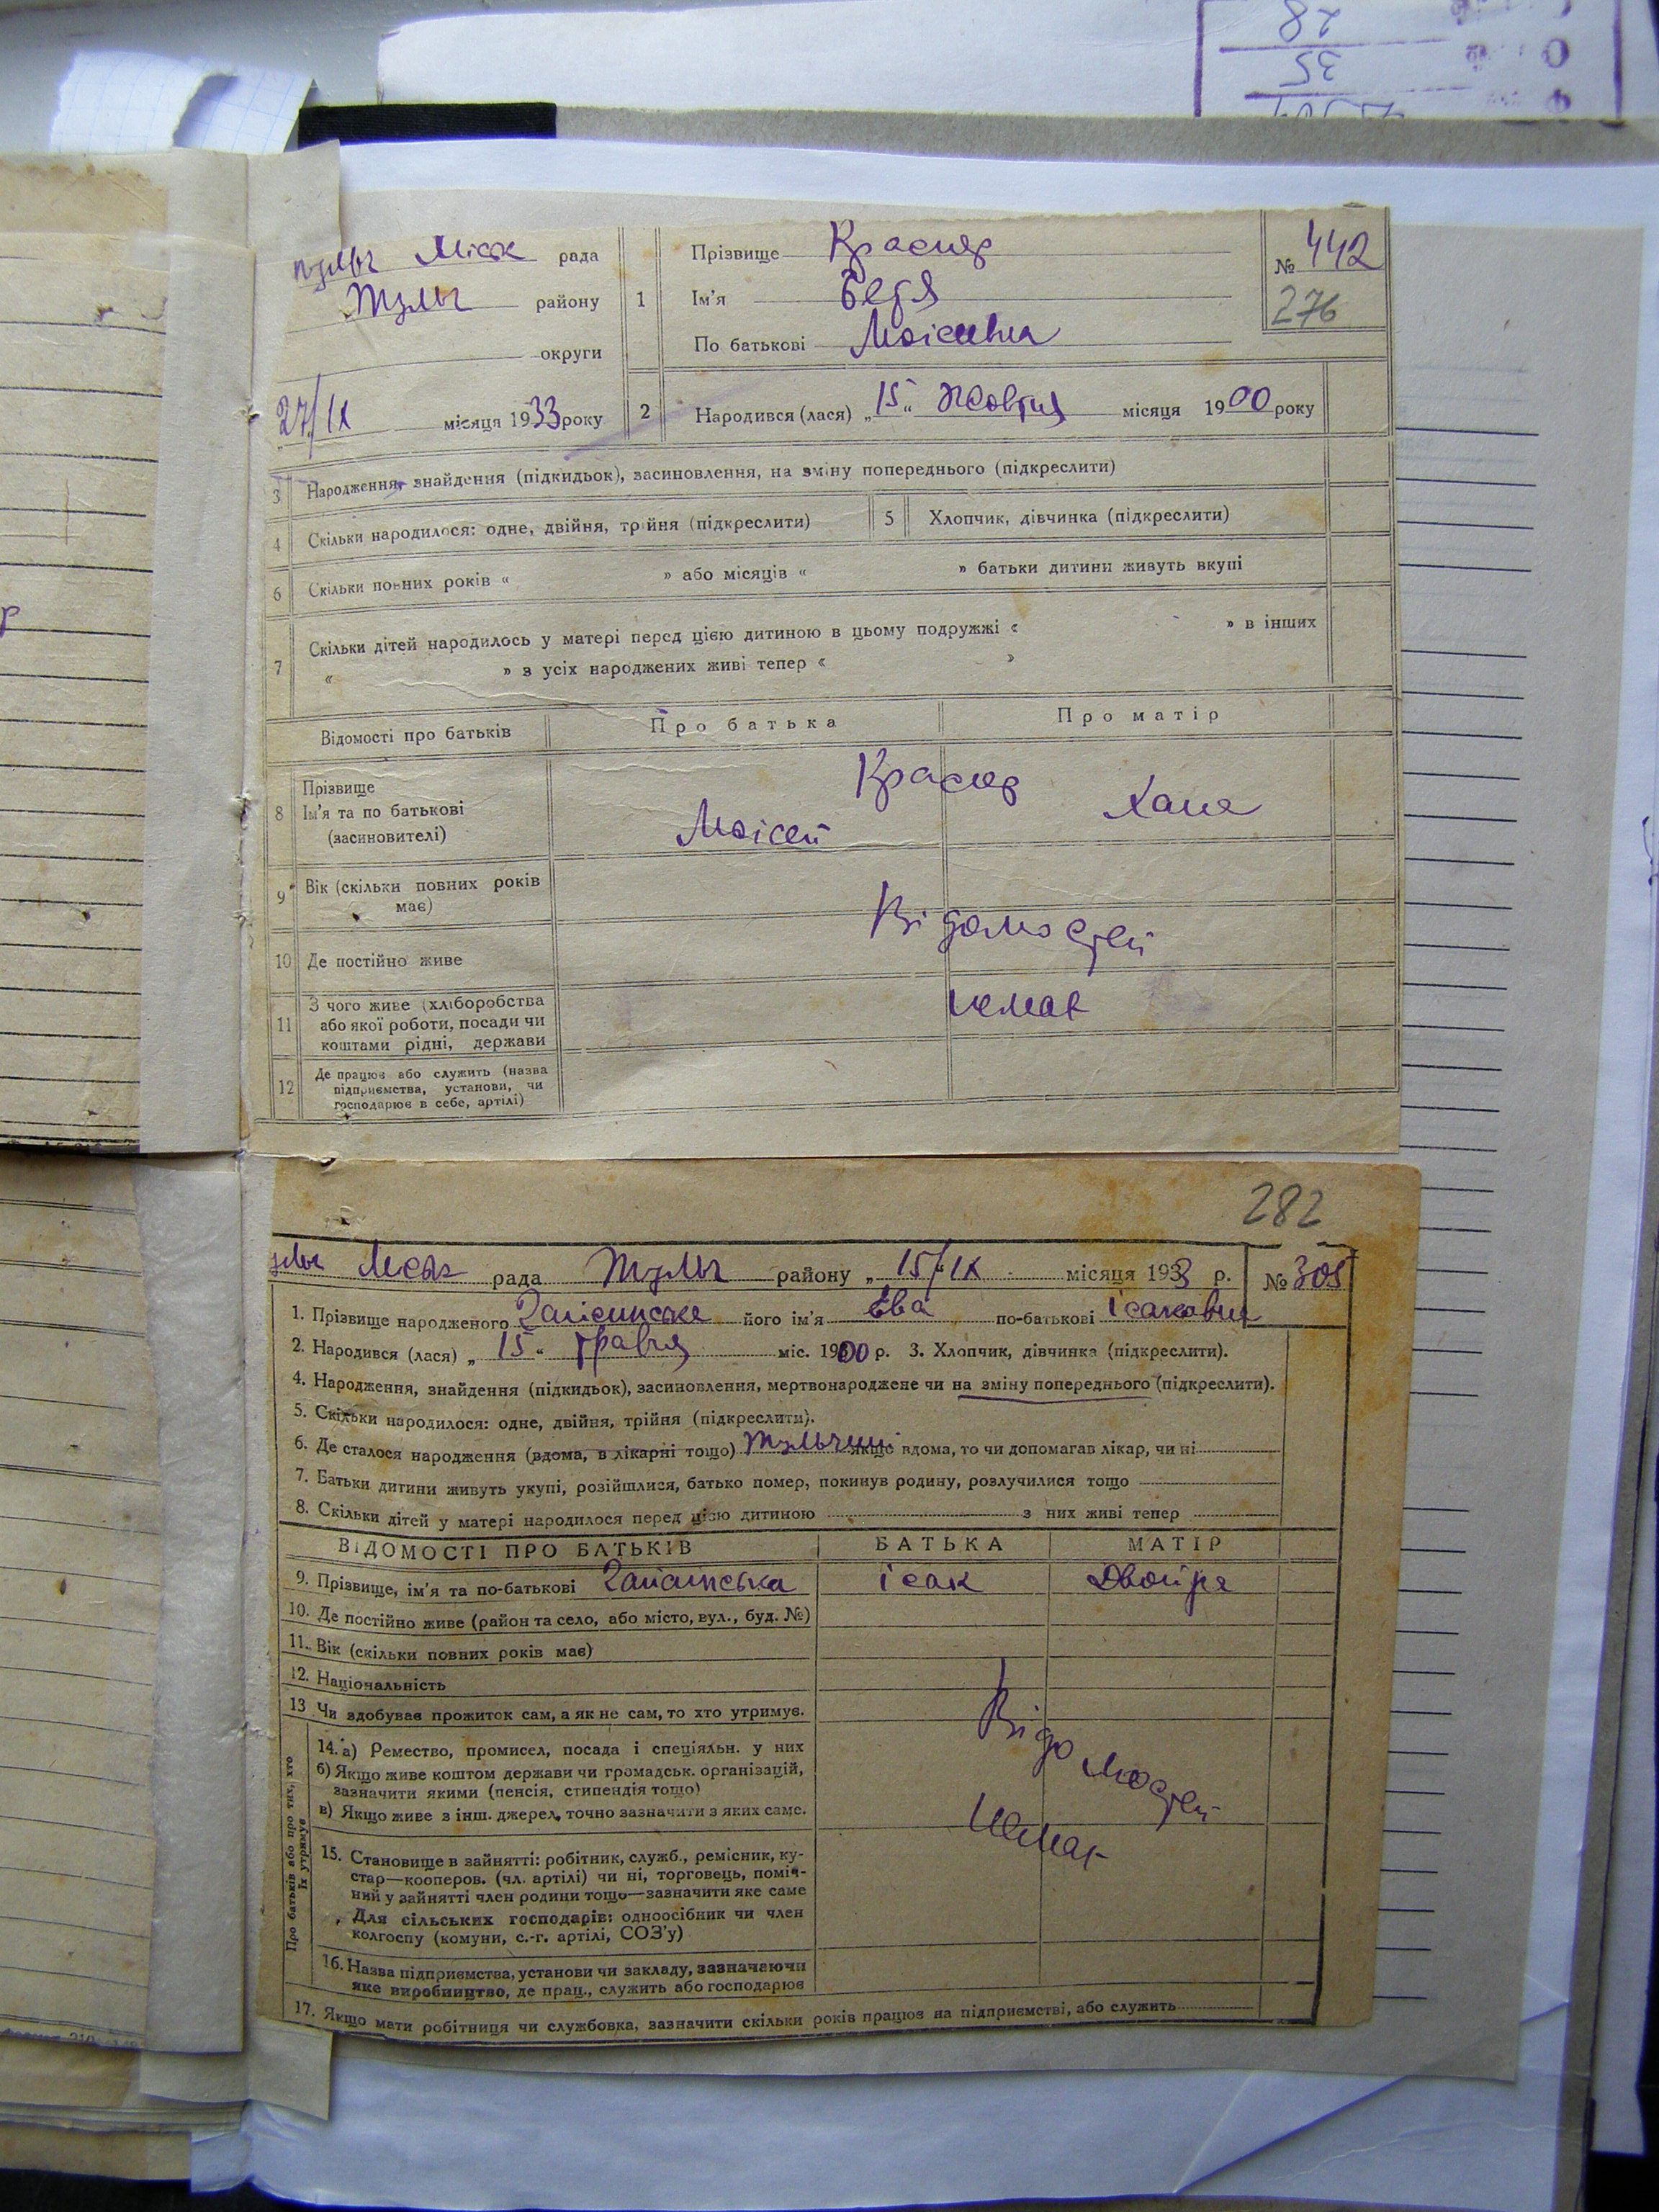 тульч Міськ рада
Тульч району
округи
27/IX місяця 1933 року
1 Прізвище Красняр
Ім'я Бетя
По батькові Моісеївна
№ 442
276
2 Народився (лася) „15“ Жовтня місяця 1900 року
3 Народження, знайдення (підкидьок), засиновлення, на зміну попереднього (підкреслити)
4 Скільки народилося: одне, двійня, трійня (підкреслити) 5 Хлопчик, дівчинка (підкреслити)
6 Скільки повних років « » або місяців « » батьки дитини живуть вкупі
7 Скільки дітей народилось у матері перед цією дитиною в цьому подружжі « » в інших
« » з усіх народжених живі тепер « »
Відомості про батьків Про батька Про матір
8 Прізвище
Ім'я та по батькові
(засновителі)
Моісей Хана
9 Вік (скільки повних років
має)
10 Де постійно живе
11 З чого живе (хліборобства
або якої роботи, посади чи
коштами рідні, держави
Відомостей
немає
12 Де працює або служить (назва
підприємства, установи, чи
господарює в себе, артілі)
282
Міськ рада Тульч району „15/IX місяця 1933 р. № 305
1. Прізвище народженого його ім'я Єва по-батькові Ісаковна
2. Народився (лася) „15“ травня міс. 1900 р. 3. Хлопчик, дівчинка (підкреслити).
4. Народження, знайдення (підкидьок), засиновлення, мертвонароджене чи на зміну попереднього (підкреслити).
5. Скільки народилося: одне, двійня, трійня (підкреслити).
6. Де сталося народження (вдома, в лікарні тощо) Тульчині якщо вдома, то чи допомагав лікар, чи ні
7. Батьки дитини живуть укупі, розійшлися, батько помер, покинув родину, розлучилися тощо
8. Скільки дітей у матері народилося перед цією дитиною з них живі тепер
ВІДОМОСТІ ПРО БАТЬКІВ БАТЬКА МАТІР
9. Прізвище, ім'я та по-батькові Ісак Двойра
10. Де постійно живе (район та село, або місто, вул., буд. №)
11. Вік (скільки повних років має)
12. Національність
13 Чи здобуває прожиток сам, а як не сам, то хто утримує.
Про батьків або про тих, хто
їх утримує
14. а) Ремество, промисел, посада і спеціяльн. у них
б) Якщо живе коштом держави чи громадськ. організацій,
зазначити якими (пенсія, стипендія тощо)
в) Якщо живе з інш. джерел, точно зазначити з яких саме.
Відомостей
немає
15. Становище в зайнятті: робітник, служб., ремісник, ку-
стар—кооперов. (чл. артілі) чи ні, торговець, поміч-
ний у зайнятті член родини тощо—зазначити яке саме
Для сільських господарів: одноосібник чи член
колгоспу (комуни, с.-г. артілі, СОЗ'у)
16. Назва підприємства, установи чи закладу, зазначаючи
яке виробництво, де прац., служить або господарює
17. Якщо мати робітниця чи службовка, зазначити скільки років працює на підприємстві, або служить